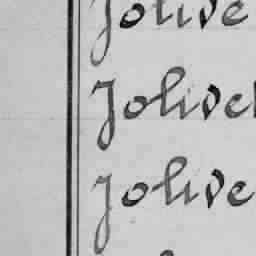 Jolive
Jolivet
Jolive